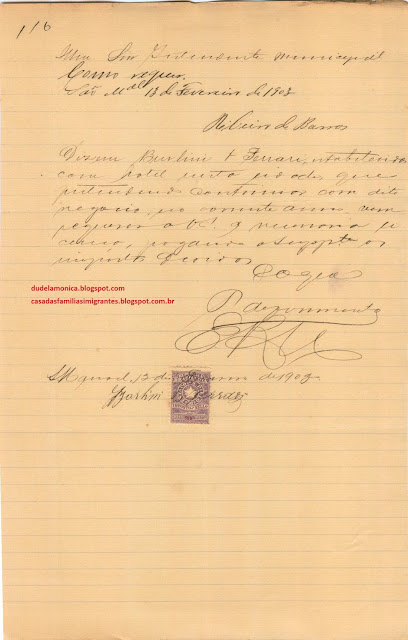 116
Illmo Snr Intendente Municipal
Como requer.
São Mel 13 de Fevereiro de 1903
Ribeiro de Barros
Dizem Burlini & Ferrari, estabelecidos
com hotel nesta cidade que
pretendendo continuar com dito
negocio, no corrente anno, vem
requerer a V. S. a necessaria li
cença, pagando o Supp os
impostos devidos
dudelamonica.blogspot.com
casadasfamiliasimigrantes.blogspot.com.br
P. deferimento
E R M
S. Manoel, 13 de de 1903
Burlini & Ferrari